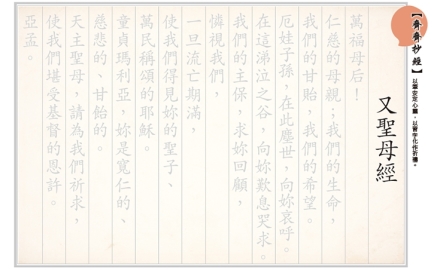 【齊齊抄經】
以靈安定心靈，以習字化作祈禱。
又聖母經
萬福母后！
仁慈的母親，我們的生命，
我們的甘飴，我們的希望。
厄娃子孫，在此塵世，向妳哀呼。
在這涕泣之谷，向妳歎息哭求。
我們的主保，求妳回顧，
憐視我們，
一旦流亡期滿，
使我們得見妳的聖子、
萬民稱頌的耶穌。
童貞瑪利亞，妳是寬仁的、
慈悲的、甘飴的。
天主聖母，請為我們祈求，
使我們堪受基督的恩許。
亞孟。